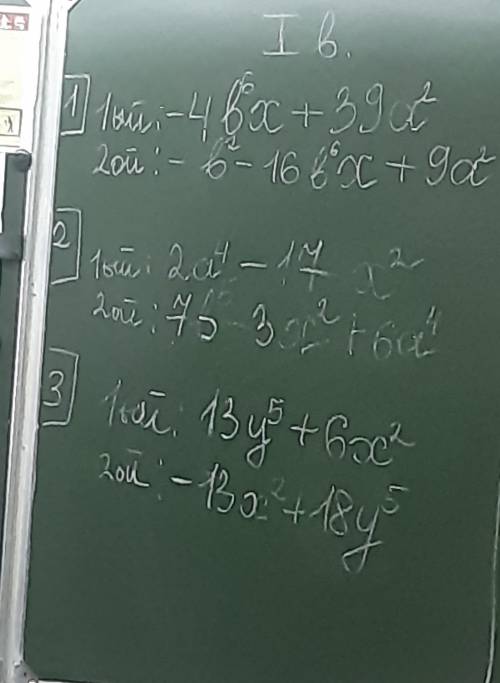 I в.
1 1ый: -4b⁶x + 39a²
2ой: -b² - 16b⁶x + 9a²
2 1ый: 2a⁴ - 17 x²
2ой: 3x² + 6a⁴
3 1ый: 13y⁵ + 6x²
2ой: -13x² + 18y⁵